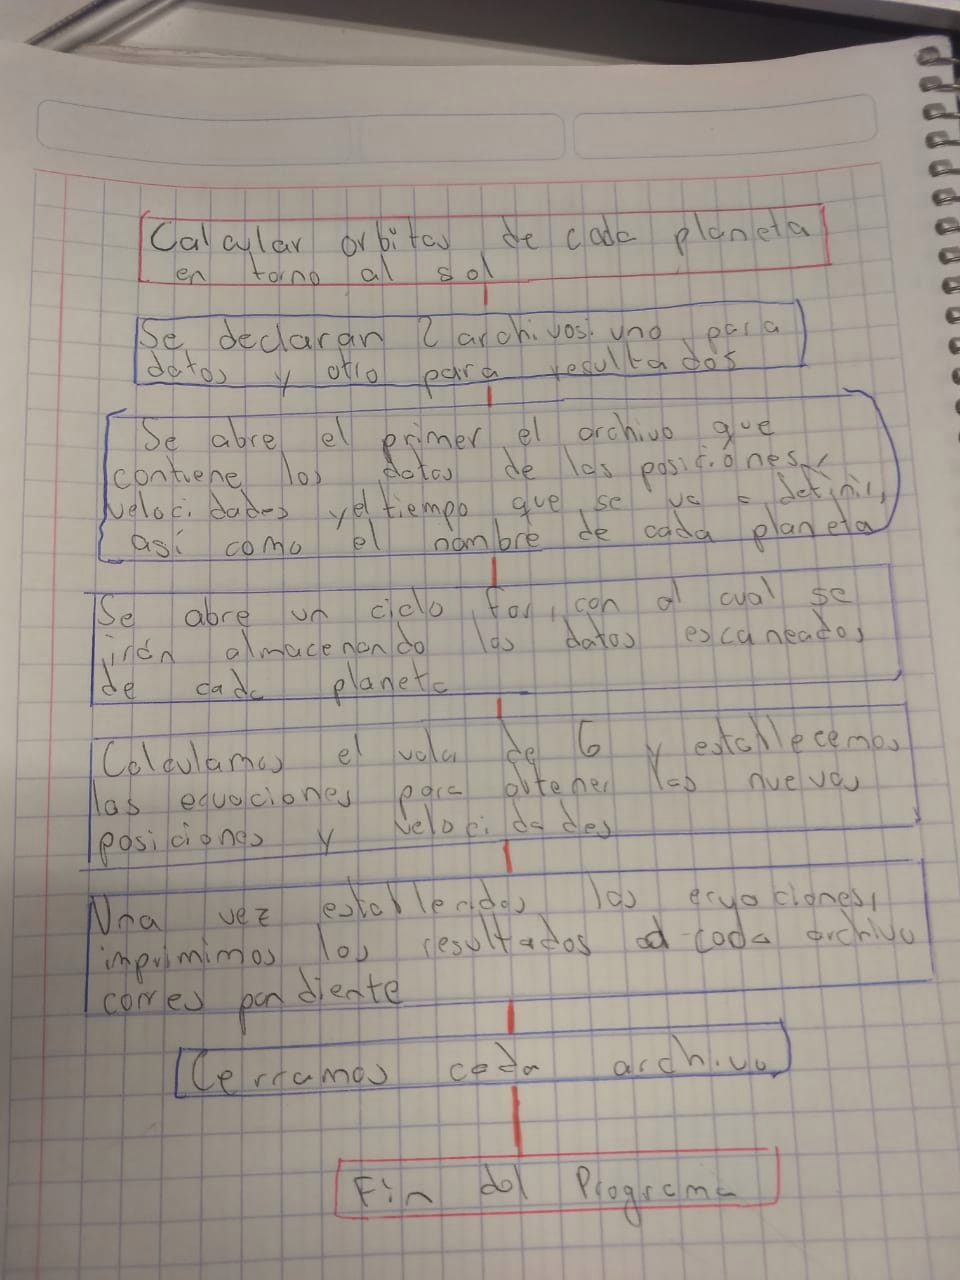 Calcular orbitas de cada planeta
en torno al sol
Se declaran 2 archivos: uno para
datos y otro para resultados
Se abre el primer el archivo que
contiene los datos de las posiciones,
velocidades y el tiempo que se va a definir,
así como el nombre de cada planeta
Se abre un ciclo for, con el cual se
irán almacenando los datos escaneados
de cada planeta
Calculamos el valor de G y establecemos
las equaciones para obtener las nuevas
posiciones y velocidades
Una vez establecidas las ecuaciones,
imprimimos los resultados cada archivo
correspondiente
Cerramos cada archivo
Fin del Programa